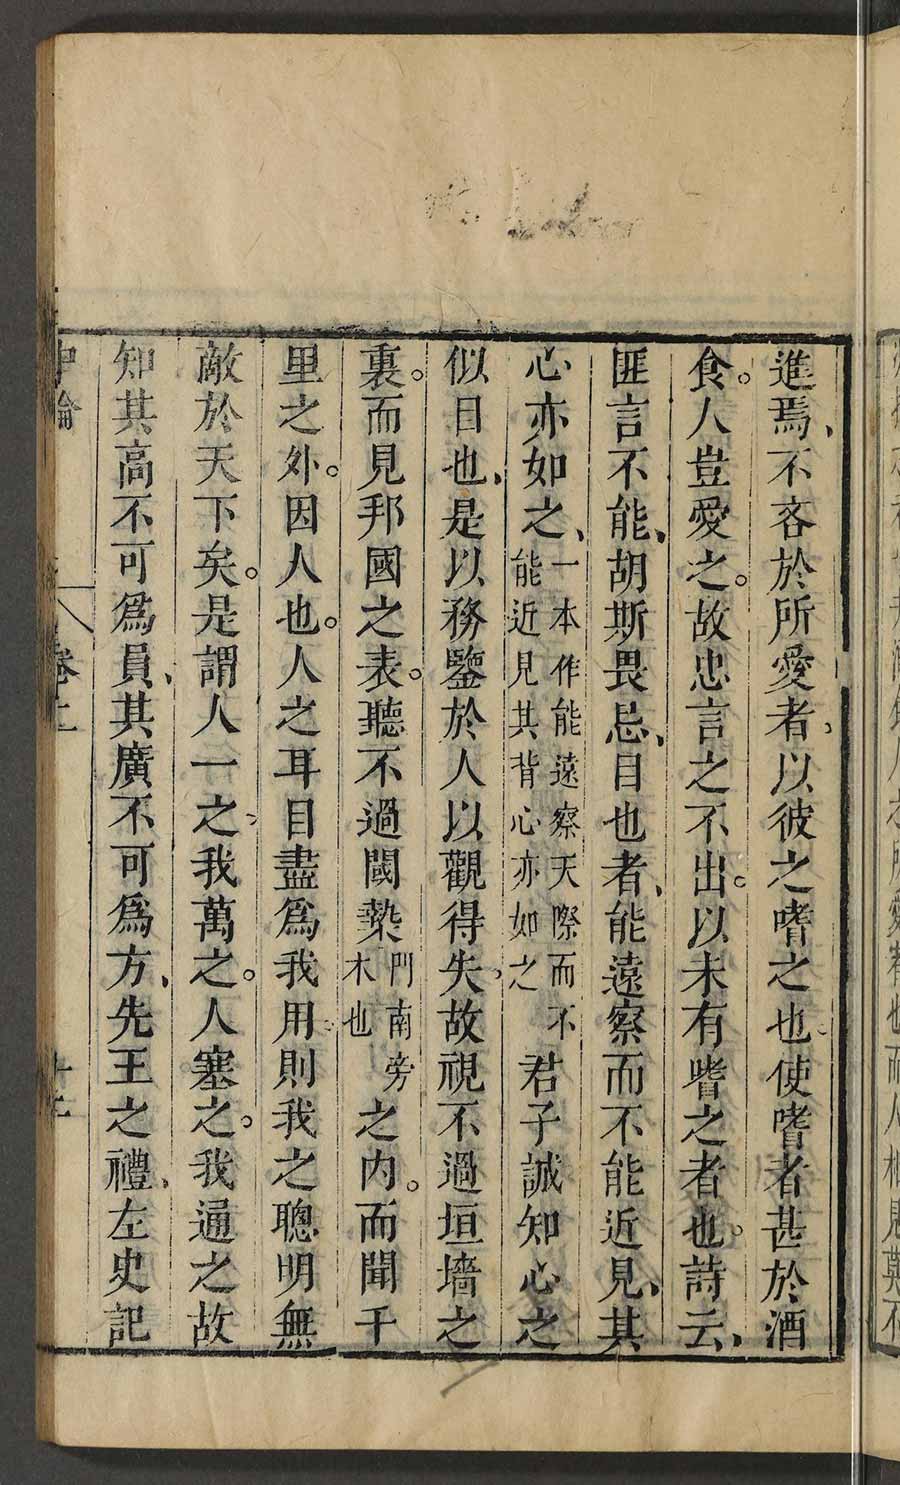 進焉、不吝於所愛者、以彼之嗜之也、使嗜者甚於酒
食。人豈愛之。故忠言之不出。以未有嗜之者也。詩云、
匪言不能、胡斯畏忌、目也者、能遠察而不能近見、其
心亦如之、一本作能遠察天際而不能近見其背心亦如之君子誠知心之
似目也、是以務鑒於人以觀得失。故視不過垣墻之
裏。而見邦國之表。聽不過閾槷門南旁木也之内。而聞千
里之外。因人也。人之耳目盡爲我用則我之聰明無
敵於天下矣。是謂人一之、我萬之。人塞之。我通之故
知其高不可爲員、其廣不可爲方、先王之禮、左史記
中論 卷上